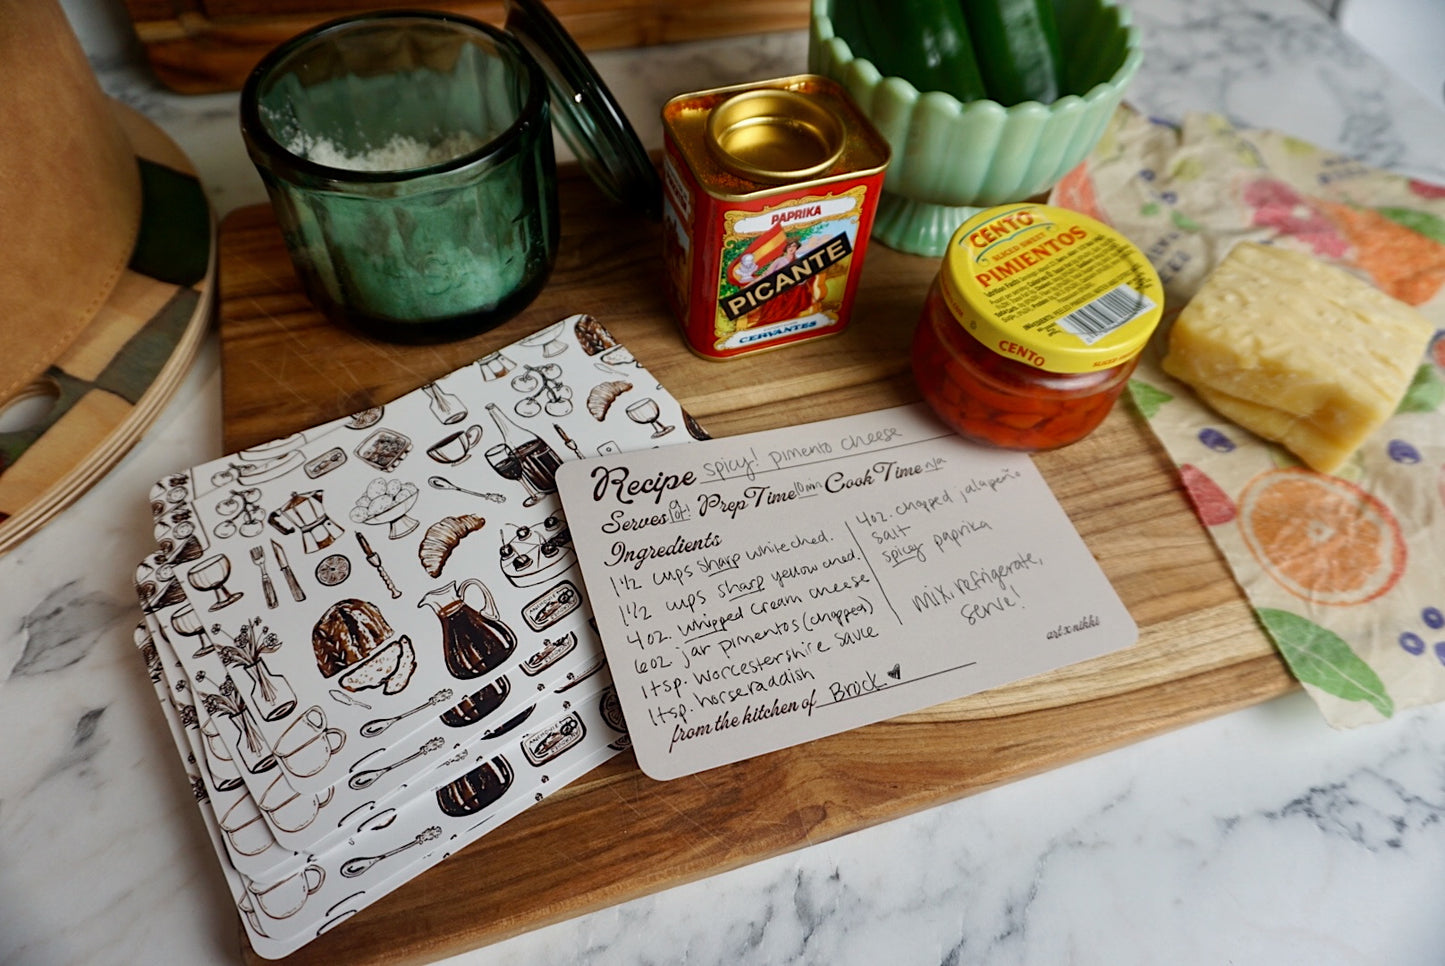 PAPRIKA
PICANTE
CERVANTES
CENTO
SLICED SWEET
PIMIENTOS
CENTO
SLICED
Recipe spicy! pimento cheese
Serves lot! Prep Time 10 min Cook Time n/a
Ingredients
1 1/2 cups sharp white ched.
1 1/2 cups sharp yellow ched.
4 oz. whipped cream cheese
6oz jar pimentos (chopped)
1 tsp. worcestershire sauce
1 tsp. horseraddish
4oz. chopped jalapeño
salt
spicy paprika
mix, refrigerate,
serve!
from the kitchen of Brock ♥
art x nikki